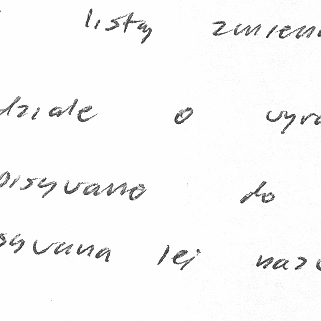 listy zmienn
dziale o wyra
pisywano do
sywana jej nazw